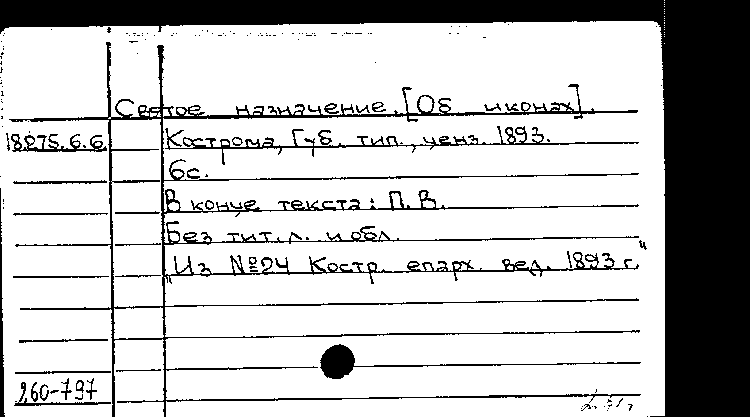 Светое назначение. [Об иконах].
18275.6.6. Кострома, Губ. тип., ценз. 1893.
6с.
В конце текста: П. В.
Без тит. л. и обл.
"Из №24 Костр. епарх. вед. 1893 г."
260-797